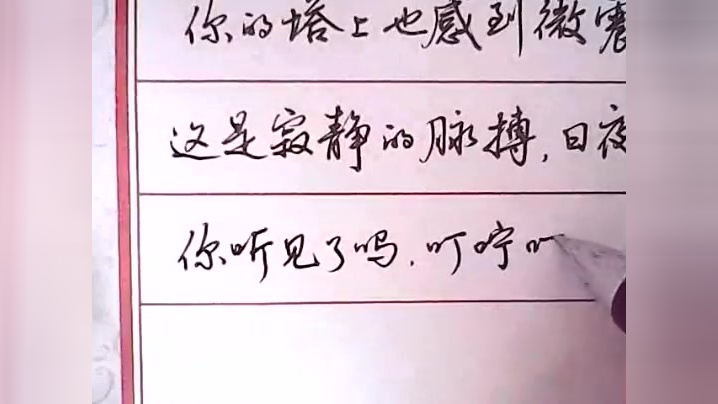 你的塔上也感到微震
这是寂静的脉搏,日夜
你听见了吗.叮咛